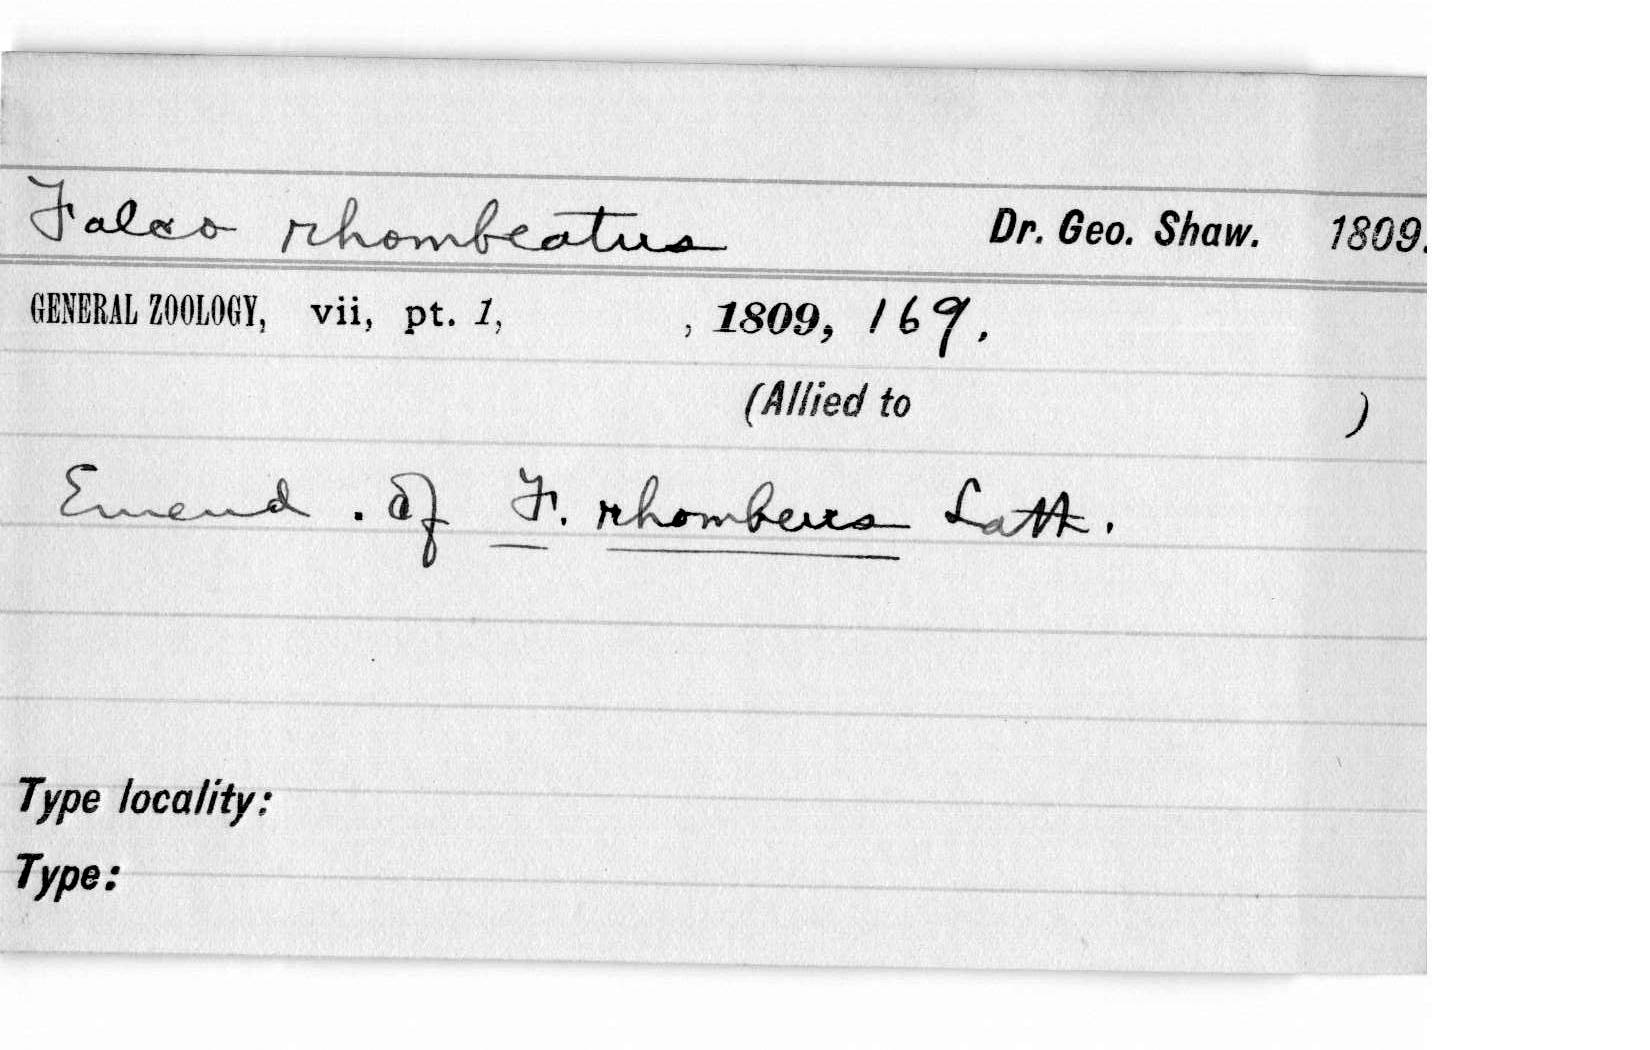 Falco rhombeatus Dr. Geo. Shaw. 1809.
GENERAL ZOOLOGY, vii, pt. 1, , 1809, 169.
(Allied to )
Emend. of F. rhombeus Lath.
Type locality:
Type: